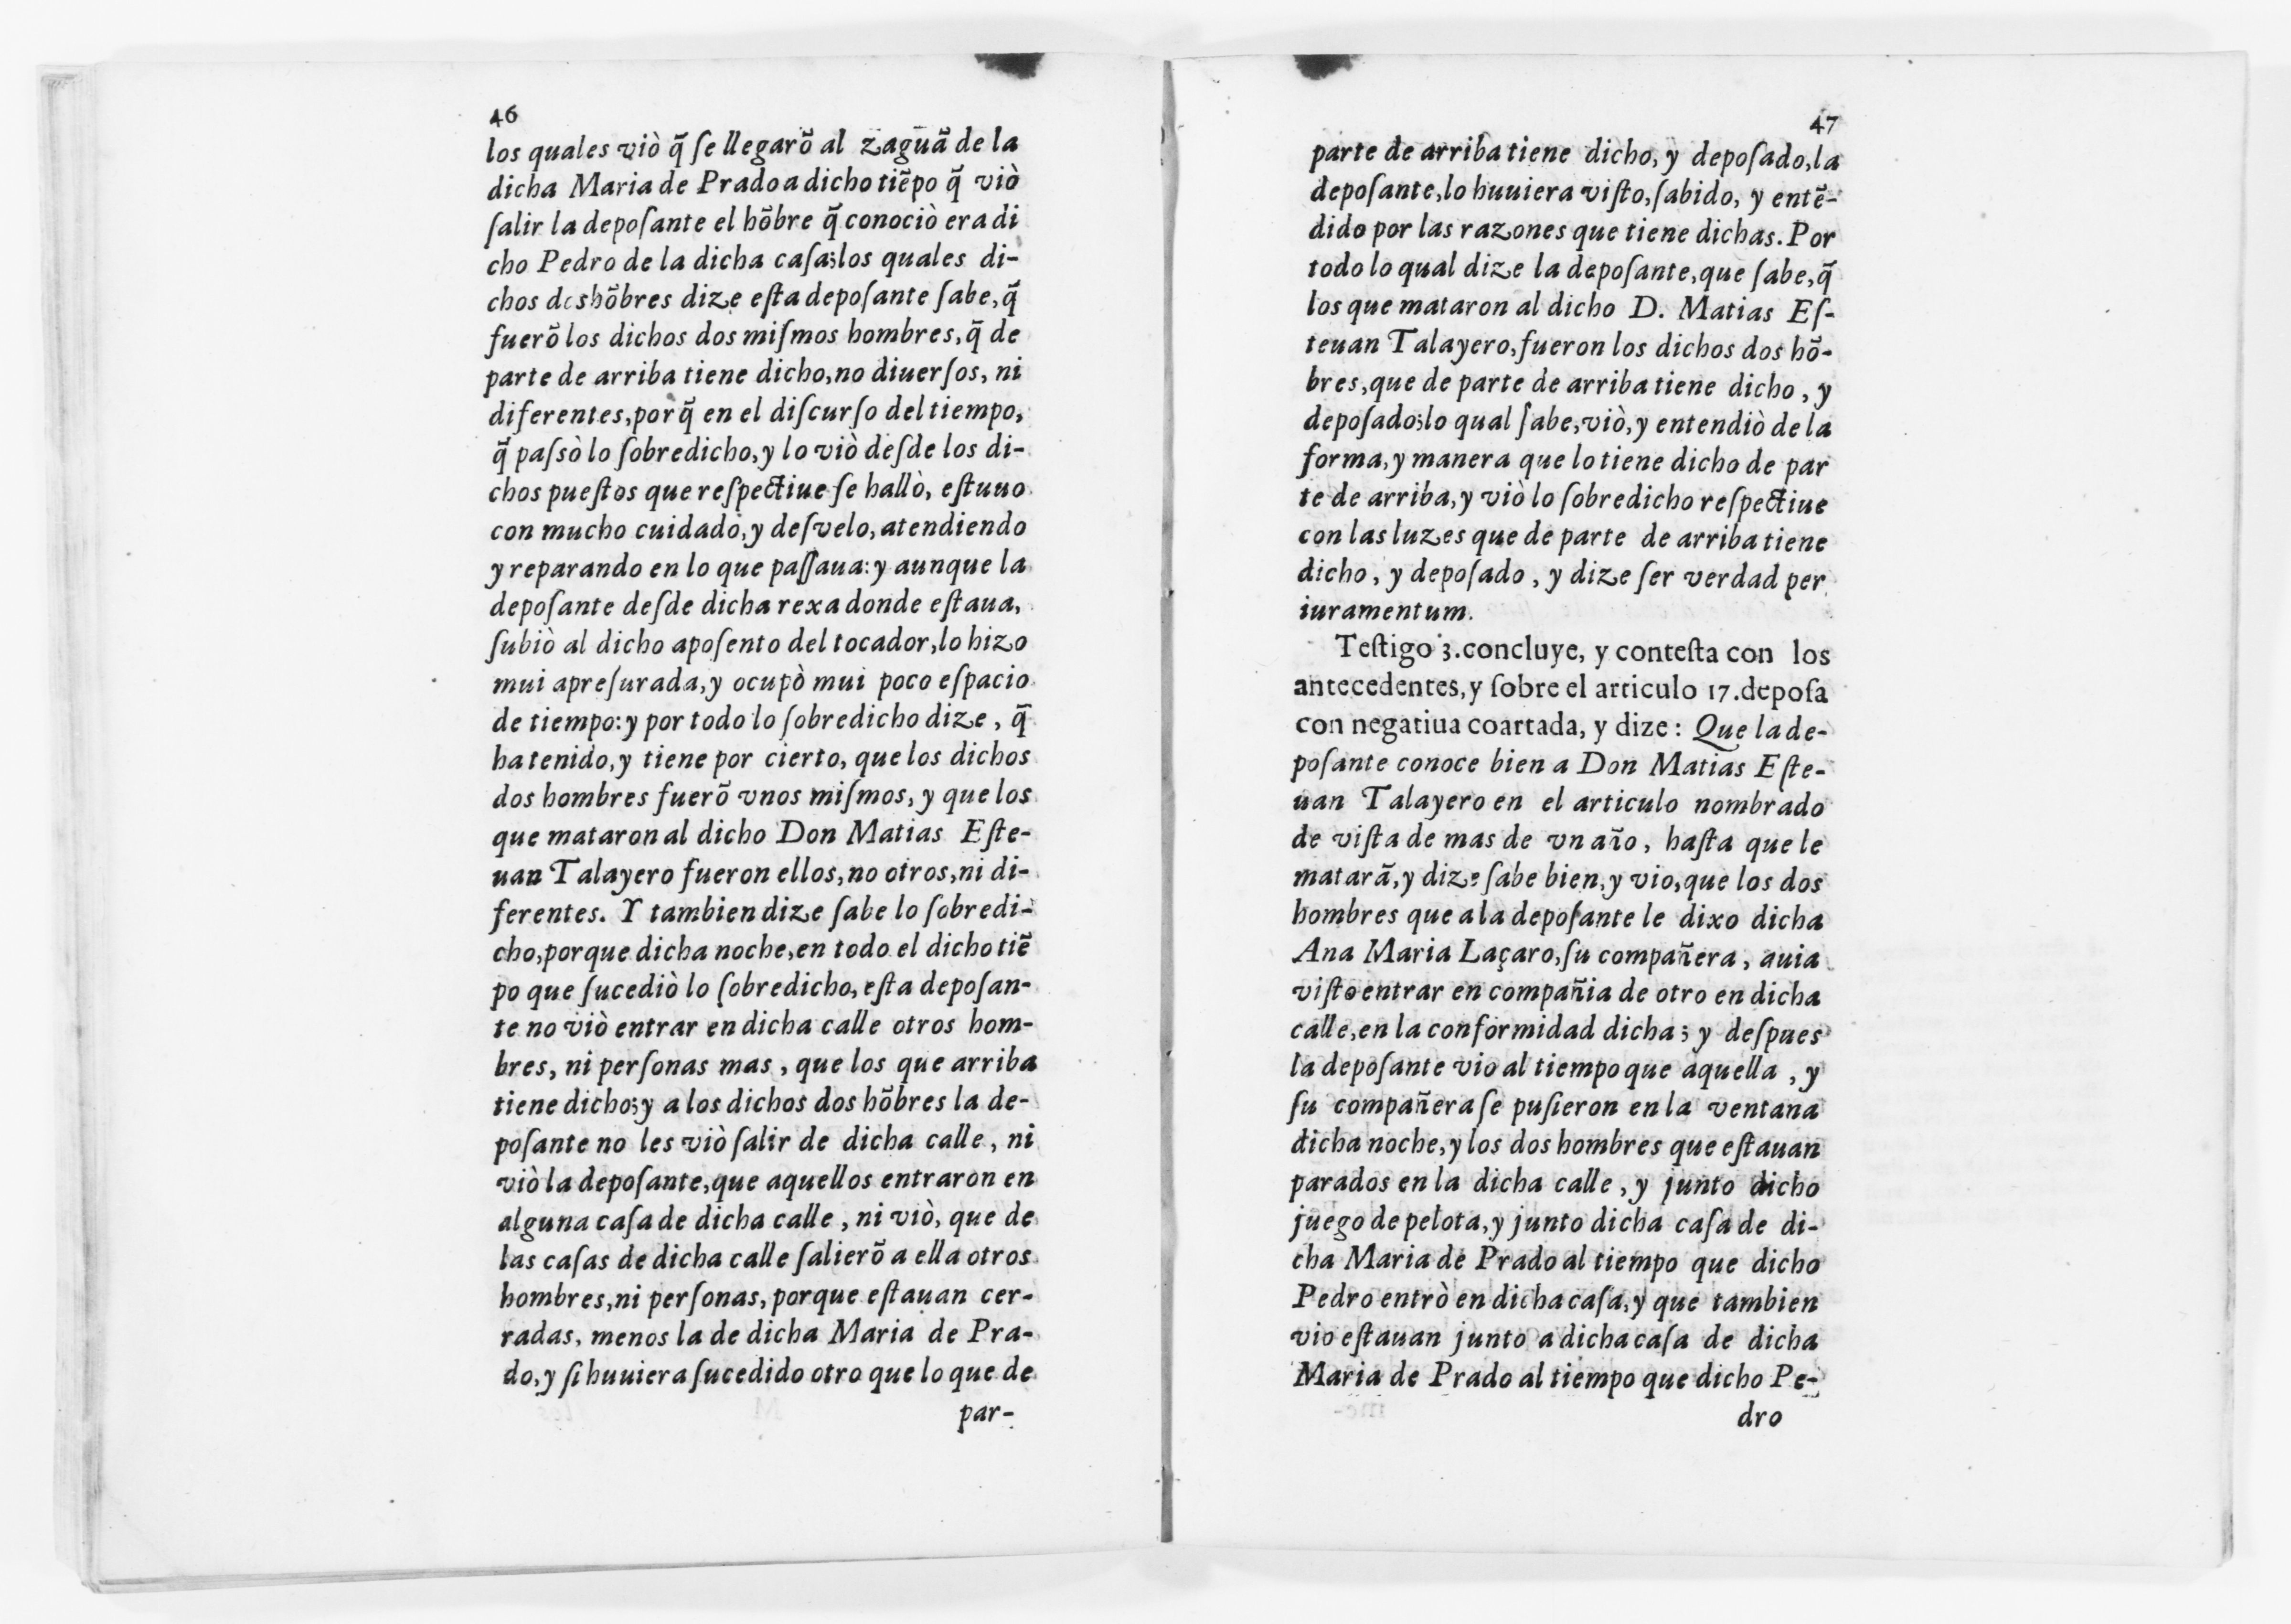 46
los quales viò q̃ ſe llegarõ al zaguã de la
dicha Maria de Prado a dicho tiẽpo q̃ viò
ſalir la depoſante el hõbre q̃ conociò era di
cho Pedro de la dicha caſa;los quales di-
chos dos hõbres dize eſta depoſante ſabe, q̃
fuerõ los dichos dos miſmos hombres, q̃ de
parte de arriba tiene dicho,no diuerſos, ni
diferentes,por q̃ en el diſcurſo del tiempo,
q̃ paſsò lo ſobredicho,y lo viò deſde los di-
chos pueſtos que reſpectiue ſe hallò, eſtuuo
con mucho cuidado,y deſvelo, atendiendo
y reparando en lo que paſſaua: y aunque la
depoſante deſde dicha rexa donde eſtaua,
ſubiò al dicho apoſento del tocador,lo hizo
mui apreſurada,y ocupò mui poco eſpacio
de tiempo: y por todo lo ſobredicho dize, q̃
ha tenido,y tiene por cierto, que los dichos
dos hombres fuerõ vnos miſmos, y que los
que mataron al dicho Don Matias Eſte-
uan Talayero fueron ellos,no otros,ni di-
ferentes. Y tambien dize ſabe lo ſobredi-
cho,porque dicha noche,en todo el dicho tiẽ
po que ſucediò lo ſobredicho, eſta depoſan-
te no viò entrar en dicha calle otros hom-
bres, ni perſonas mas, que los que arriba
tiene dicho;y a los dichos dos hõbres la de-
poſante no les viò ſalir de dicha calle, ni
viò la depoſante,que aquellos entraron en
alguna caſa de dicha calle, ni viò, que de
las caſas de dicha calle ſalierõ a ella otros
hombres,ni perſonas, porque eſtauan cer-
radas, menos la de dicha Maria de Pra-
do,y ſi huuiera ſucedido otro que lo que de
par-
47
parte de arriba tiene dicho, y depoſado,la
depoſante,lo huuiera viſto,ſabido, y entẽ-
dido por las razones que tiene dichas. Por
todo lo qual dize la depoſante,que ſabe,q̃
los que mataron al dicho D. Matias Eſ-
teuan Talayero,fueron los dichos dos hõ-
bres,que de parte de arriba tiene dicho, y
depoſado;lo qual ſabe,viò,y entendiò de la
forma,y manera que lo tiene dicho de par
te de arriba,y viò lo ſobredicho reſpectiue
con las luzes que de parte de arriba tiene
dicho, y depoſado, y dize ſer verdad per
iuramentum.
Teſtigo 3.concluye, y conteſta con los
antecedentes,y ſobre el articulo 17.depoſa
con negatiua coartada, y dize: Que la de-
poſante conoce bien a Don Matias Eſte-
uan Talayero en el articulo nombrado
de viſta de mas de vn año, haſta que le
matarã,y dize ſabe bien,y vio,que los dos
hombres que a la depoſante le dixo dicha
Ana Maria Laçaro,ſu compañera, auia
viſto entrar en compañia de otro en dicha
calle,en la conformidad dicha; y deſpues
la depoſante vio al tiempo que aquella, y
ſu compañera ſe puſieron en la ventana
dicha noche,y los dos hombres que eſtauan
parados en la dicha calle, y junto dicho
juego de pelota,y junto dicha caſa de di-
cha Maria de Prado al tiempo que dicho
Pedro entrò en dicha caſa,y que tambien
vio eſtauan junto a dicha caſa de dicha
Maria de Prado al tiempo que dicho Pe-
dro